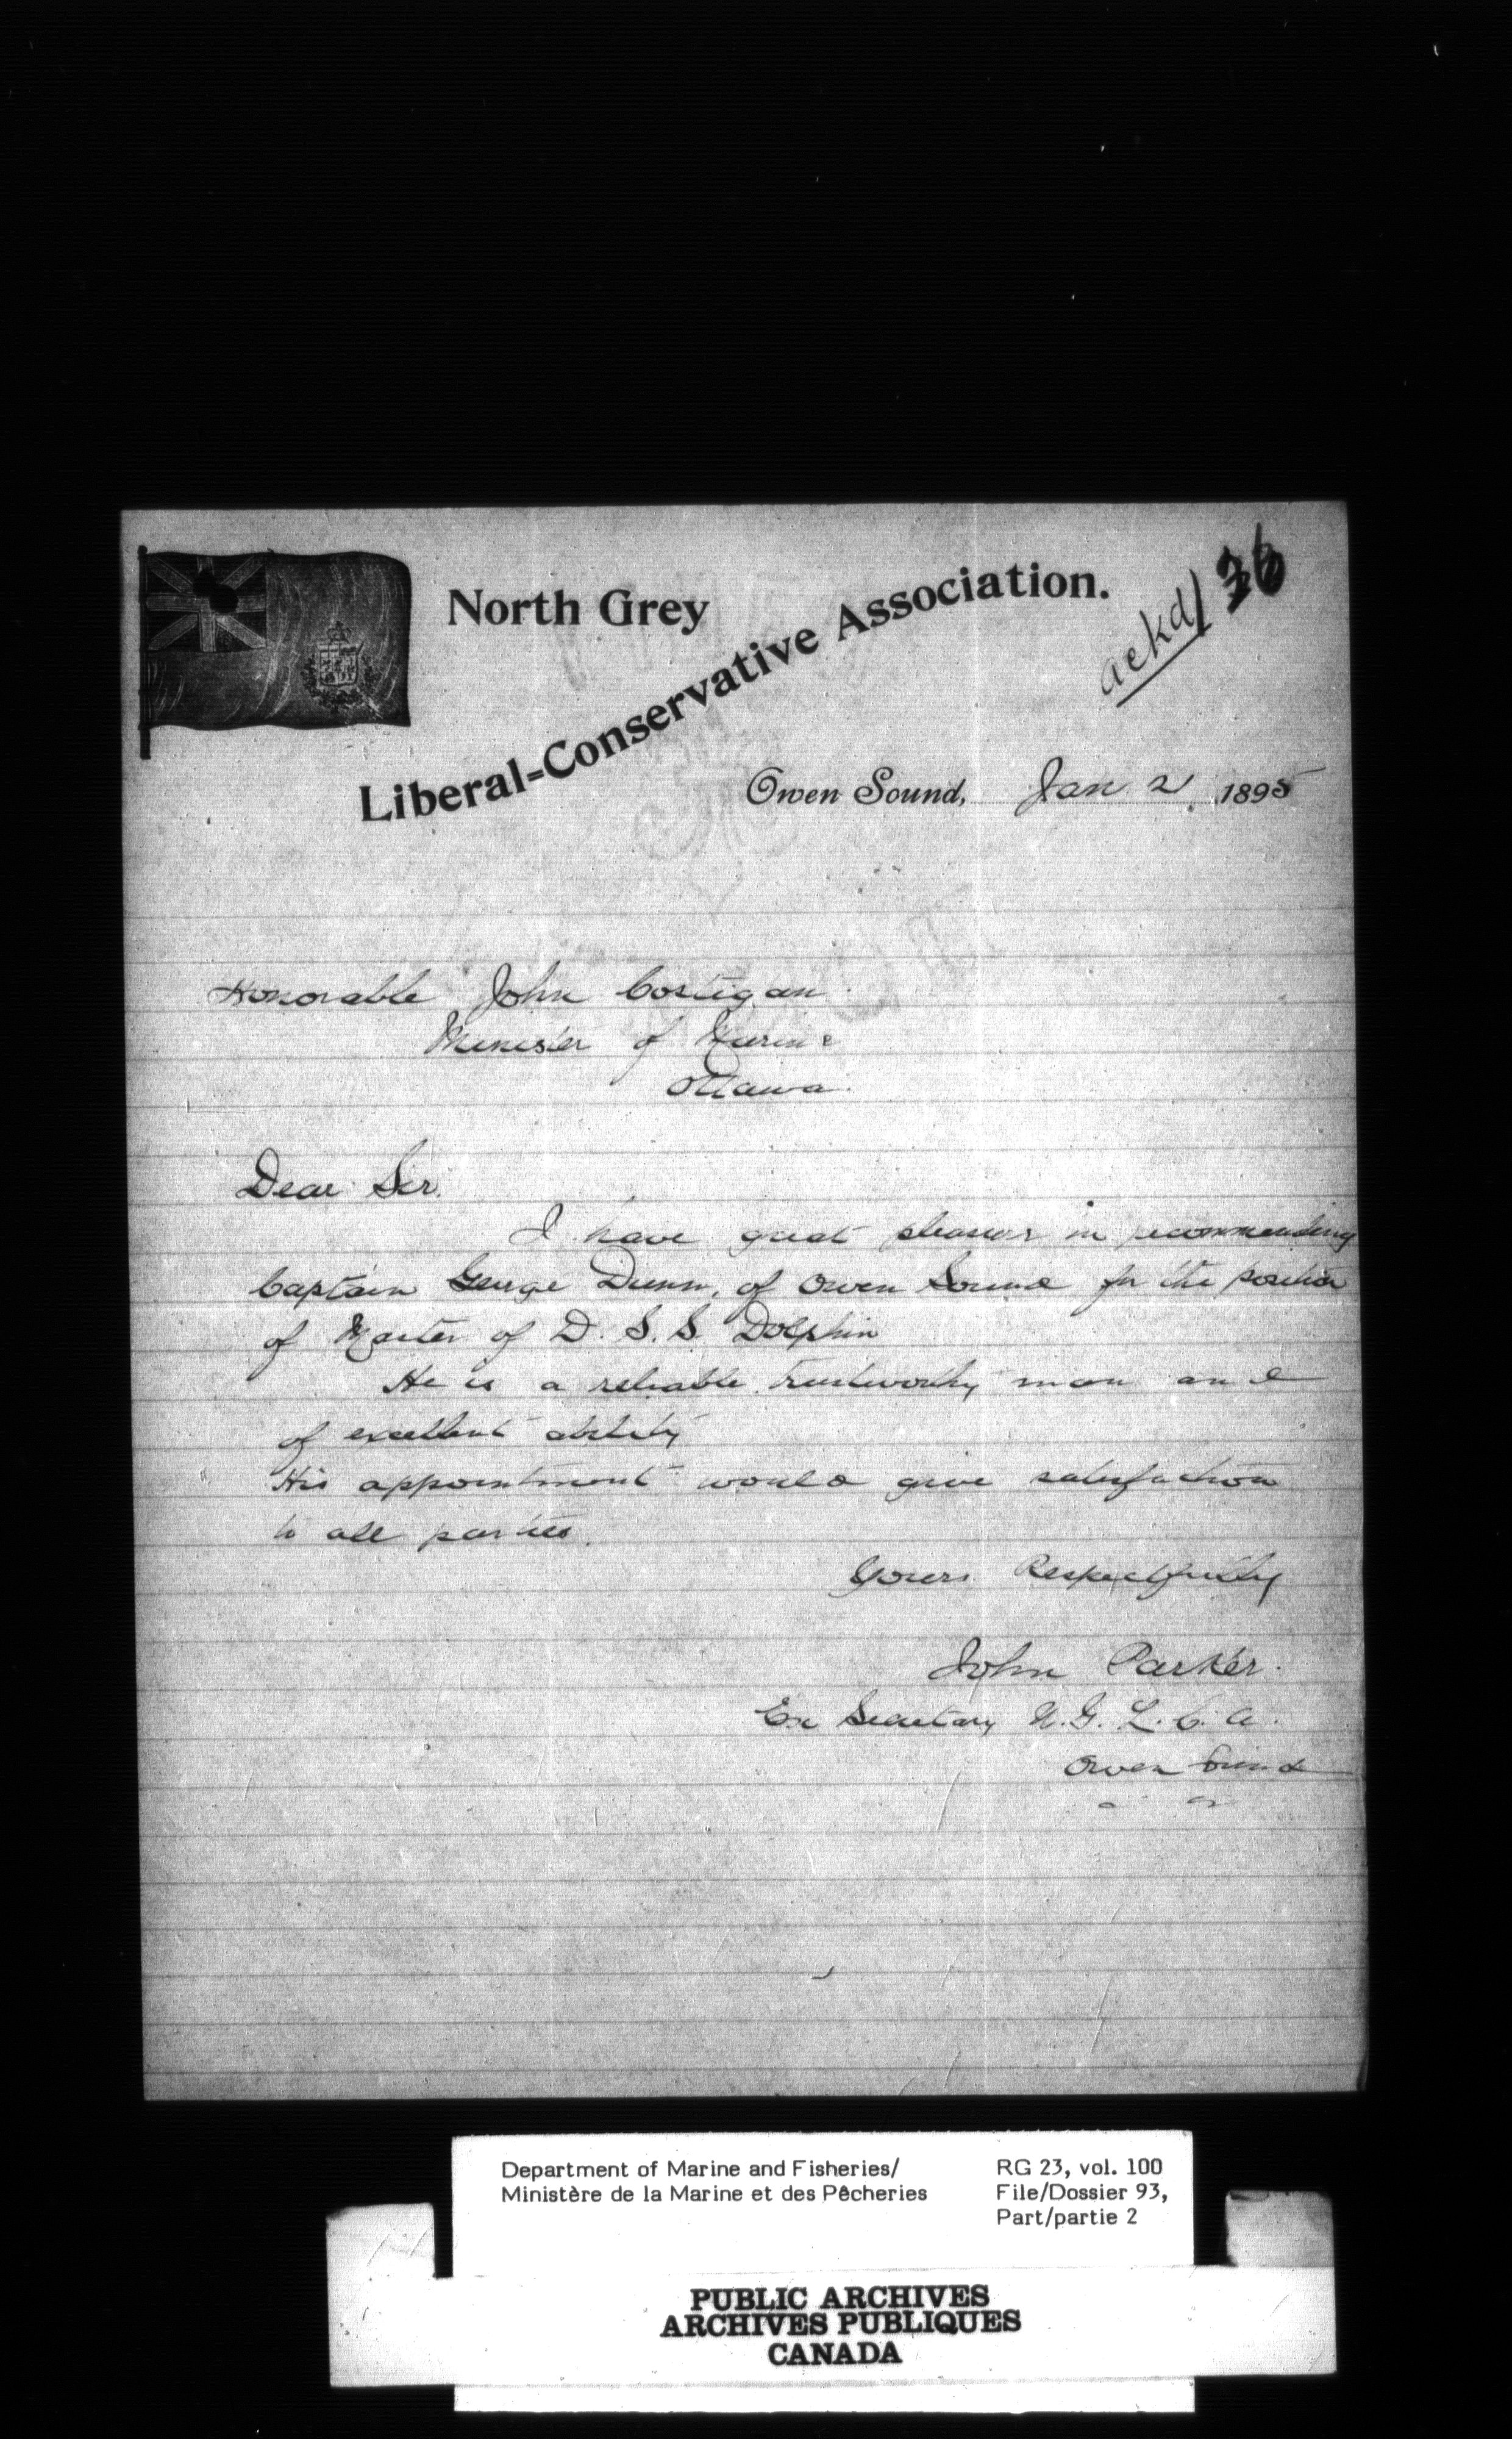 North Grey
Liberal-Conservative Association.
ackd/ 36
Owen Sound, Jan 2 1895
Honorable John Costigan
Minister of Marine
Ottawa.
Dear Sir.
I have great pleasure in recommending
Captain George Dunn, of Owen Sound for the position
of Master of D. S. S. Dolphin
He is a reliable trustworthy man and
of excellent ability
His appointment would give satisfaction
to all parties.
Yours Respectfully
John Parker.
Ex Secretary N. G. L. C. A.
Owen Sound
Department of Marine and Fisheries/
Ministère de la Marine et des Pêcheries
RG 23, vol. 100
File/Dossier 93,
Part/partie 2
PUBLIC ARCHIVES
ARCHIVES PUBLIQUES
CANADA